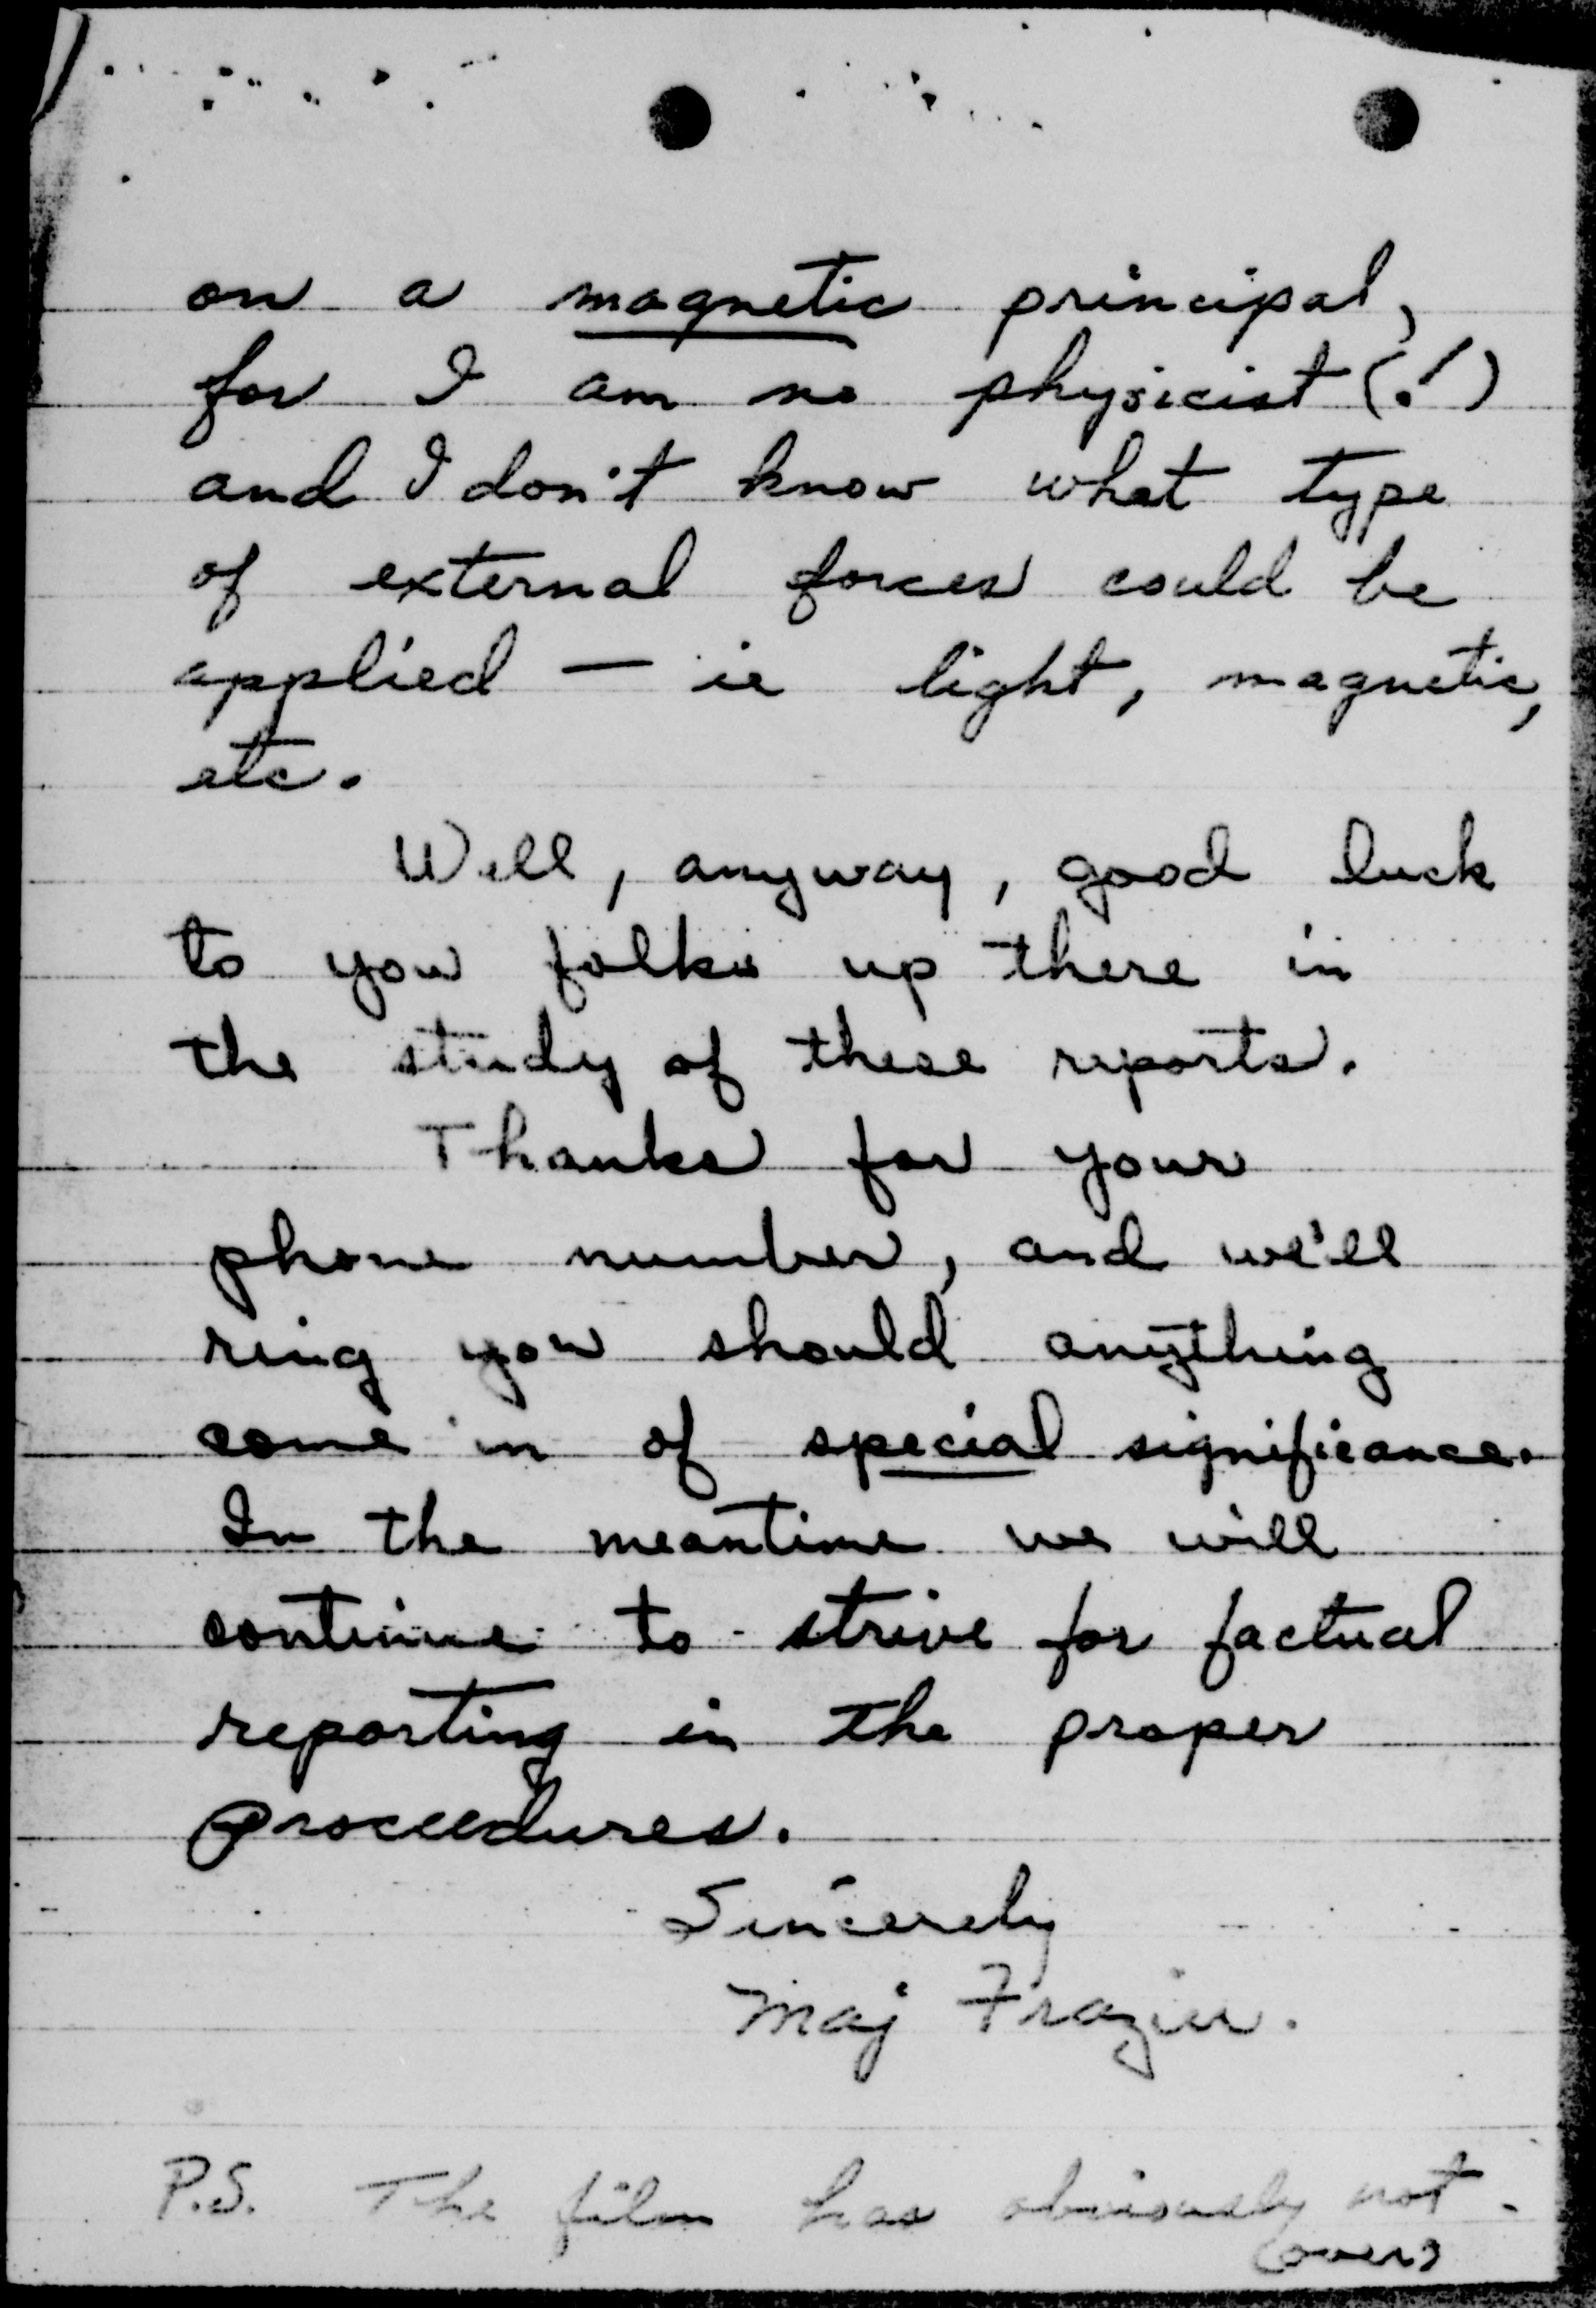 on a magnetic principal,
for I am no physicist (!)
and I don't know what type
of external forces could be
applied — ie light, magnetic,
etc.
Well, anyway, good luck
to you folks up there in
the study of these reports.
Thanks for your
phone number, and we'll
ring you should anything
come in of special significance.
In the meantime we will
continue to strive for factual
reporting in the proper
proceedures.
Sincerely
Maj Frazier.
P.S. The film has obviously not
(over)